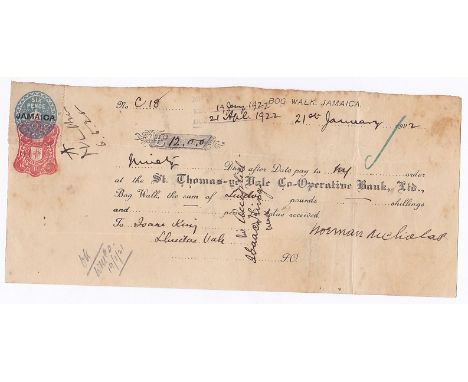 SIX
PENCE
JAMAICA
No C/18
BOG WALK, JAMAICA.
21 April 1922
21st January 1922
£ 12.0.0
Ninety Days after Date pay to my order
at the St. Thomas-ye-Vale Co-Operative Bank, Ltd.,
Bog Walk, the sum of Twelve pounds — shillings
and pence value received
To Isaac King
Lluidas Vale
P.O.
Norman Nicholas